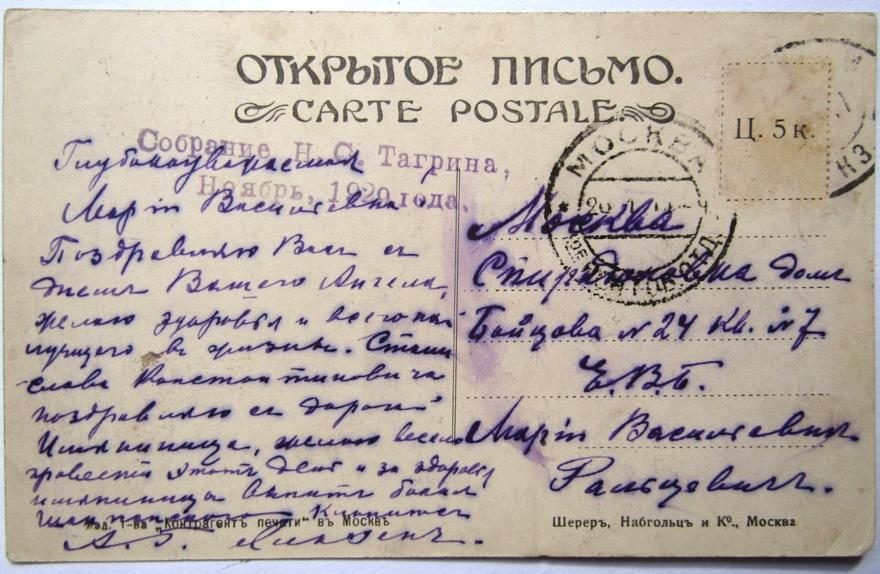 ОТКРЫТОЕ ПИСЬМО.
CARTE POSTALE
Ц. 5 к.
Собрание Н. С. Тагрина,
Ноябрь, 1920 года.
МОСКВА
Глубокоуважаемая
Марiя Васильевна!
Поздравляю Васъ съ
днемъ Вашего Ангела,
желаю здоровья и всего наи
лучшего въ жизни. Стани
слава Константиновича
поздравляю съ дорогой
Имянинница, желаю весело
провести этотъ день и за здоровье
имянинницы выпить бокалъ
шампанского
Москва
Спиридоновка домъ
Бойцова N 24 кв. N 7
Е.В.Б.
Марiи Васильевнѣ
Ральцевичъ.
Изд. т-ва „Контрагентъ печати“ въ Москвѣ
Шереръ, Набгольцъ и К°., Москва